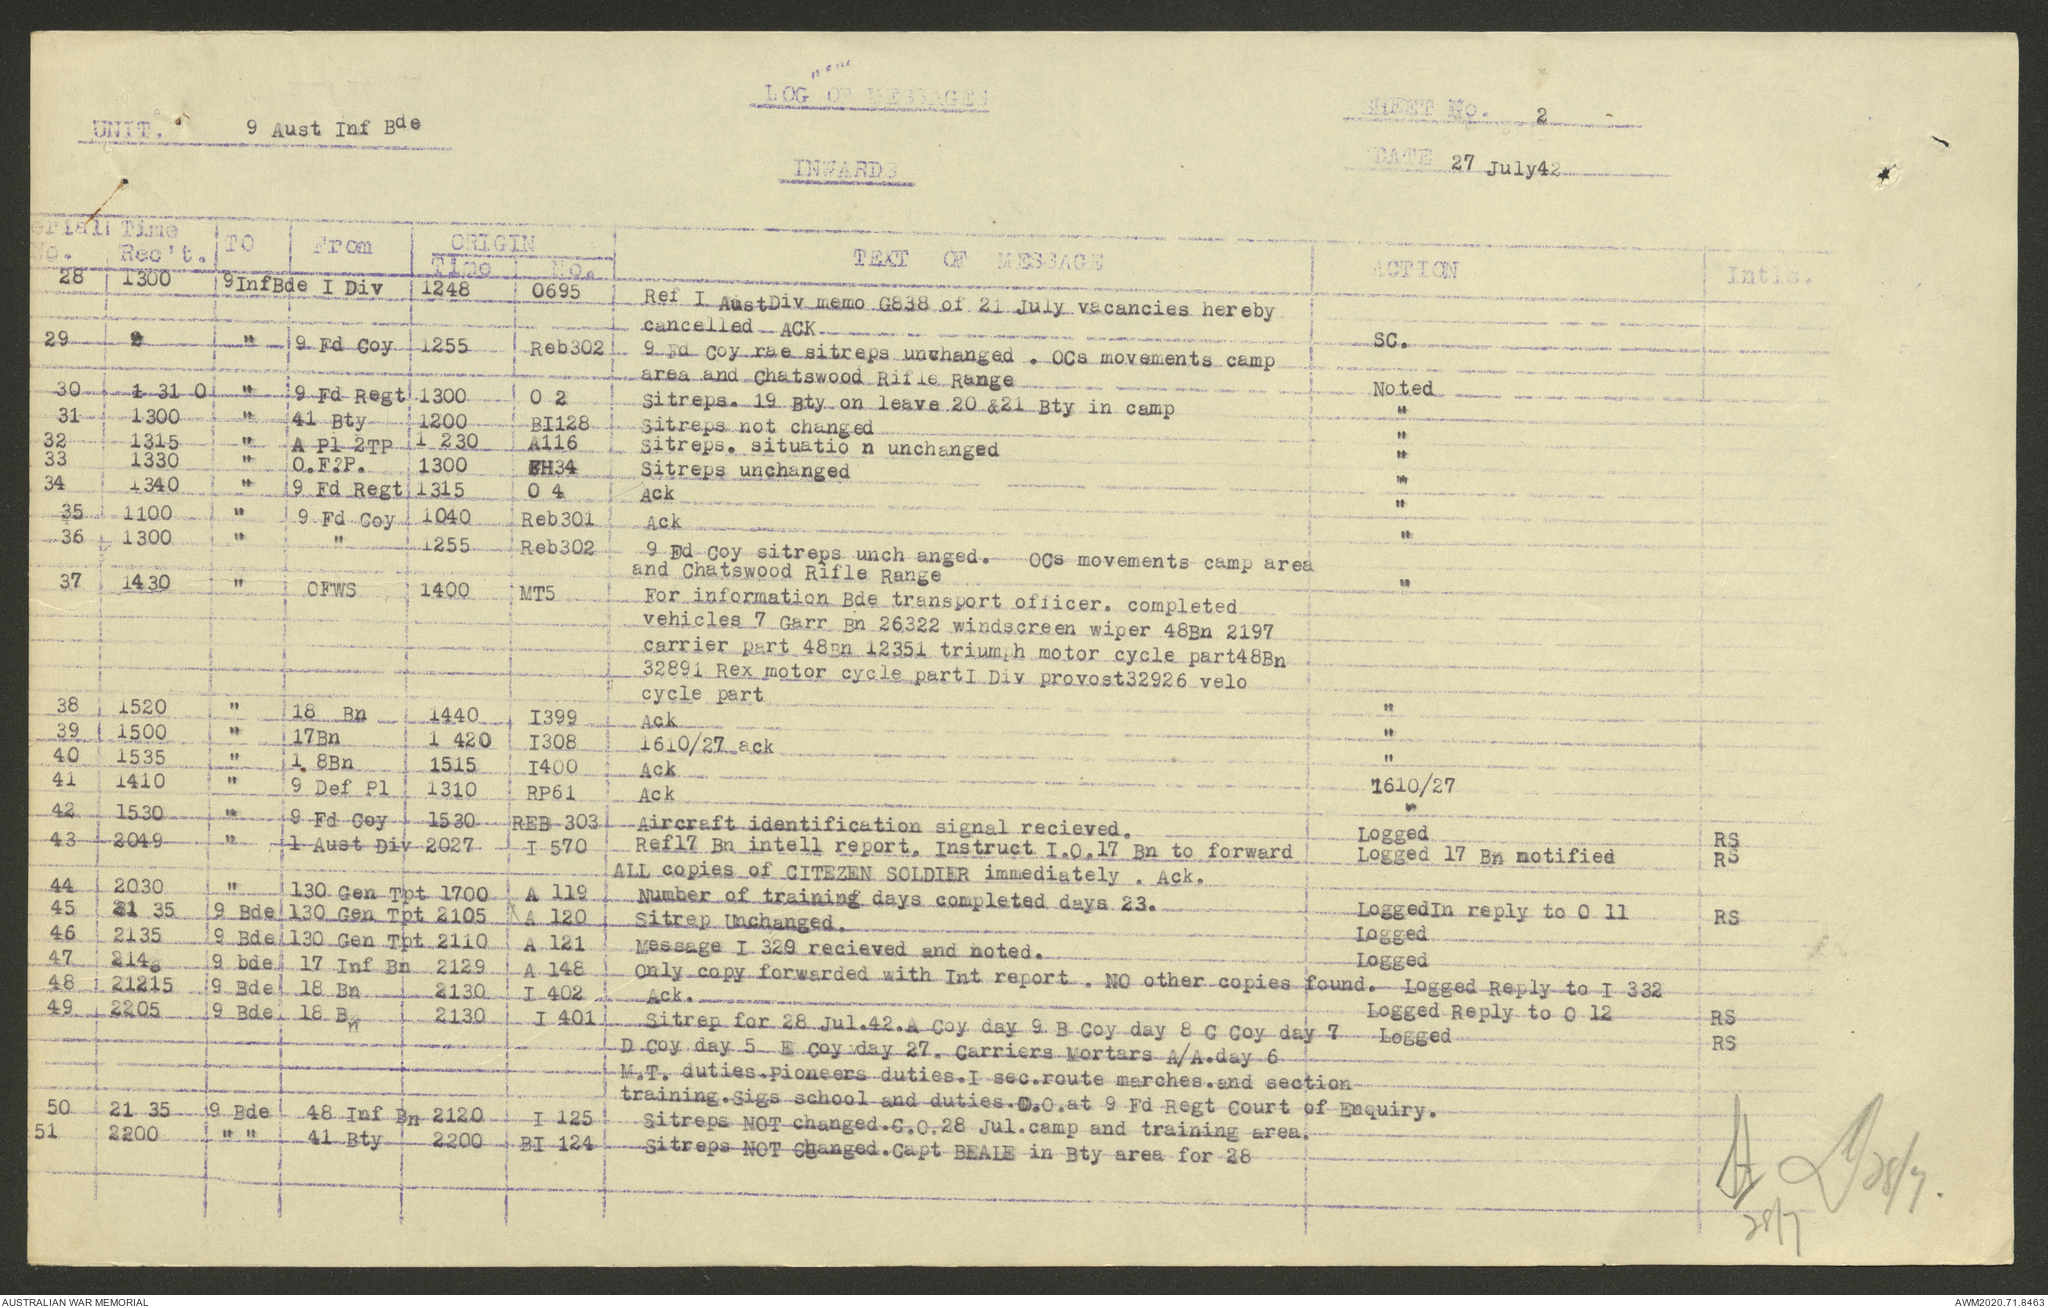 LOG OF MESSAGES
SHEET No. 2
UNIT. 9 Aust Inf Bde
INWARDS
DATE 27 July42
erial Time TO From ORIGIN TEXT OF MESSAGE ACTION Intls.
No. Rec't. Time No.
28 1300 9InfBde I Div 1248 0695 Ref I AustDiv memo G838 of 21 July vacancies hereby
cancelled ACK SC.
29 " 9 Fd Coy 1255 Reb302 9 Fd Coy rae sitreps unchanged . OCs movements camp
area and Chatswood Rifle Range Noted
30 1 31 0 " 9 Fd Regt 1300 O 2 Sitreps. 19 Bty on leave 20 &21 Bty in camp "
31 1300 " 41 Bty 1200 BI128 Sitreps not changed "
32 1315 " A Pl 2TP 1 230 A116 Sitreps. situatio n unchanged "
33 1330 " O.F?P. 1300 EH34 Sitreps unchanged "
34 1340 " 9 Fd Regt 1315 O 4 Ack "
35 1100 " 9 Fd Coy 1040 Reb301 Ack
36 1300 " " 1255 Reb302 9 Fd Coy sitreps unch anged. OCs movements camp area "
and Chatswood Rifle Range
37 1430 " OFWS 1400 MT5 For information Bde transport officer. completed "
vehicles 7 Garr Bn 26322 windscreen wiper 48Bn 2197
carrier part 48Bn 12351 triumph motor cycle part48Bn
32891 Rex motor cycle partI Div provost32926 velo
cycle part
38 1520 " 18 Bn 1440 I399 Ack "
39 1500 " 17Bn 1 420 I308 1610/27 ack "
40 1535 " 1. 8Bn 1515 I400 Ack "
41 1410 " 9 Def Pl 1310 RP61 Ack 1610/27
"
42 1530 " 9 Fd Coy 1530 REB 303 Aircraft identification signal recieved. Logged RS
43 2049 " 1 Aust Div 2027 I 570 Ref17 Bn intell report. Instruct I.O.17 Bn to forward Logged 17 Bn notified RS
ALL copies of CITEZEN SOLDIER immediately . Ack.
44 2030 " 130 Gen Tpt 1700 A 119 Number of training days completed days 23. LoggedIn reply to O 11 RS
45 21 35 9 Bde 130 Gen Tpt 2105 A 120 Sitrep Unchanged. Logged
46 2135 9 Bde 130 Gen Tpt 2110 A 121 Message I 329 recieved and noted. Logged
47 214 9 bde 17 Inf Bn 2129 A 148 Only copy forwarded with Int report . NO other copies found. Logged Reply to I 332
48 21215 9 Bde 18 Bn 2130 I 402 Ack. Logged Reply to O 12 RS
49 2205 9 Bde 18 Bn 2130 I 401 Sitrep for 28 Jul.42.A Coy day 9 B Coy day 8 C Coy day 7 Logged RS
D Coy day 5 E Coy day 27. Carriers Mortars A/A.day 6
M.T. duties.Pioneers duties.I sec.route marches.and section
training.Sigs school and duties.C.O.at 9 Fd Regt Court of Enquiry.
50 21 35 9 Bde 48 Inf Bn 2120 I 125 Sitreps NOT changed.C.O.28 Jul.camp and training area.
51 2200 " " 41 Bty 2200 BI 124 Sitreps NOT Changed.Capt BEALE in Bty area for 28
28/7.
28/7
AUSTRALIAN WAR MEMORIAL
AWM2020.71.8463